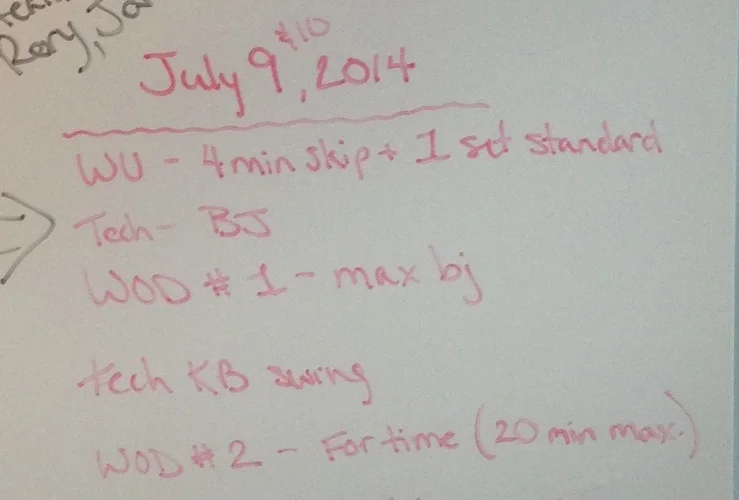 Rory, Jo
& 10
July 9, 2014
WU - 4 min skip + 1 set standard
Tech - BJ
WOD # 1 - max bj
tech KB swing
WOD # 2 - For time (20 min max.)